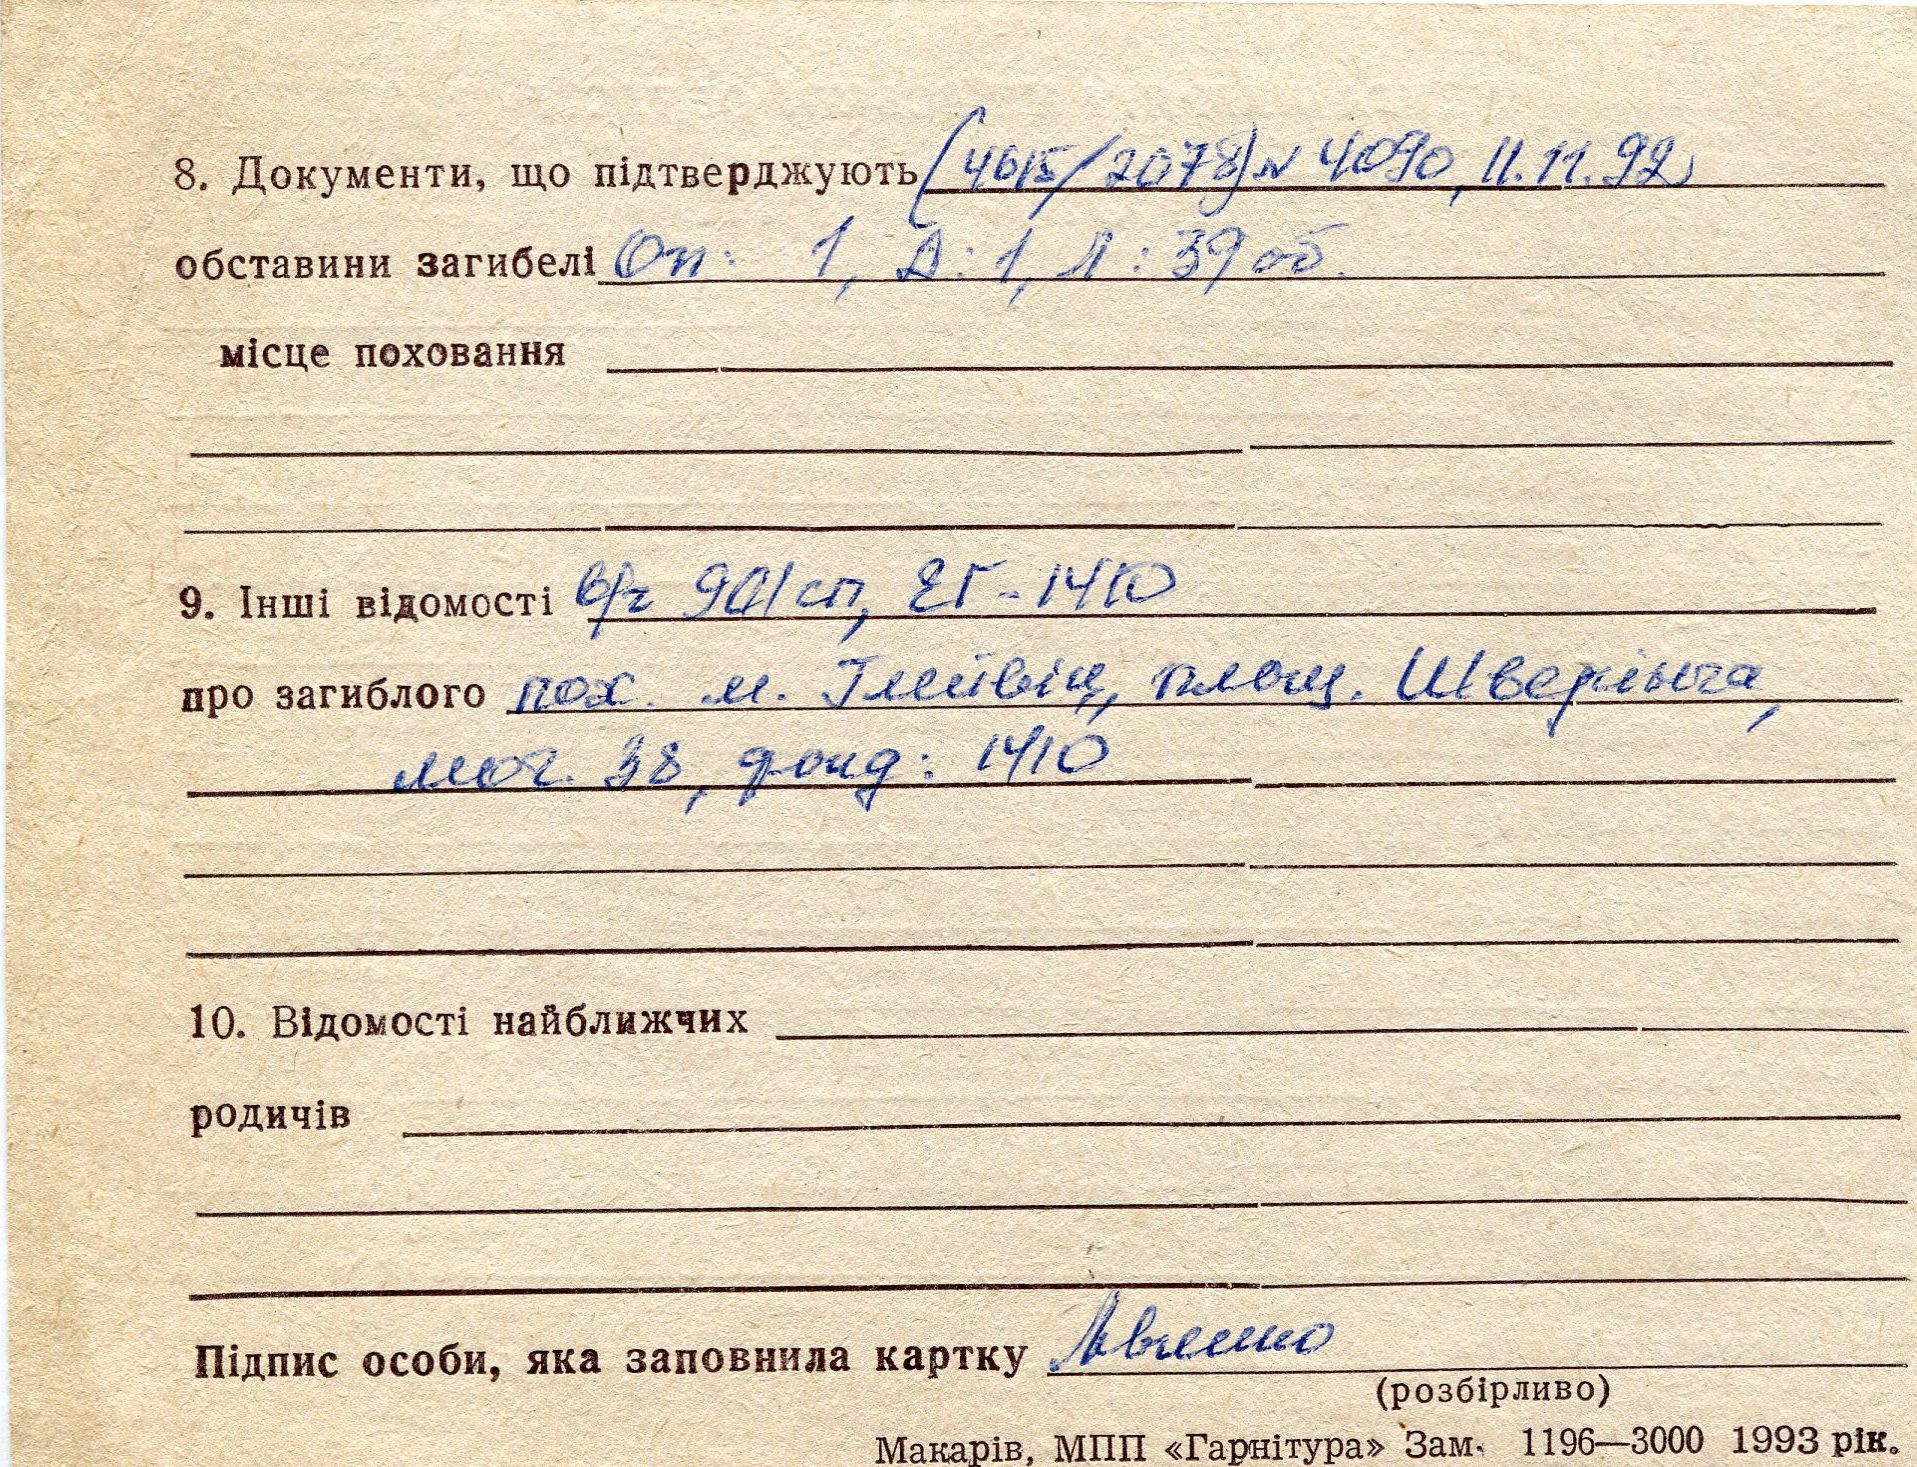 8. Документи, що підтверджують (4615/2078) № 4090, 11.11.92
обставини загибелі Оп: 1, Д: 1, Л: 39 об.
місце поховання
9. Інші відомості в/ч 901 сп, ЕГ-1410
про загиблого пох. м. Глейвіц, площ.
мог. 38, фонд: 1410
10. Відомості найближчих
родичів
Підпис особи, яка заповнила картку
(розбірливо)
Макарів, МПП «Гарнітура» Зам. 1196—3000 1993 рік.